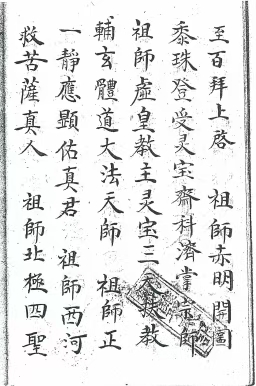 至百拜上啓　祖師赤明開圖
黍珠登受灵宝齋科濟掌宗師
祖師虛皇教主灵宝三天扶教
輔玄體道大法天師　祖師正
一靜應顯佑真君　祖師西河
救苦薩真人　祖師北極四聖